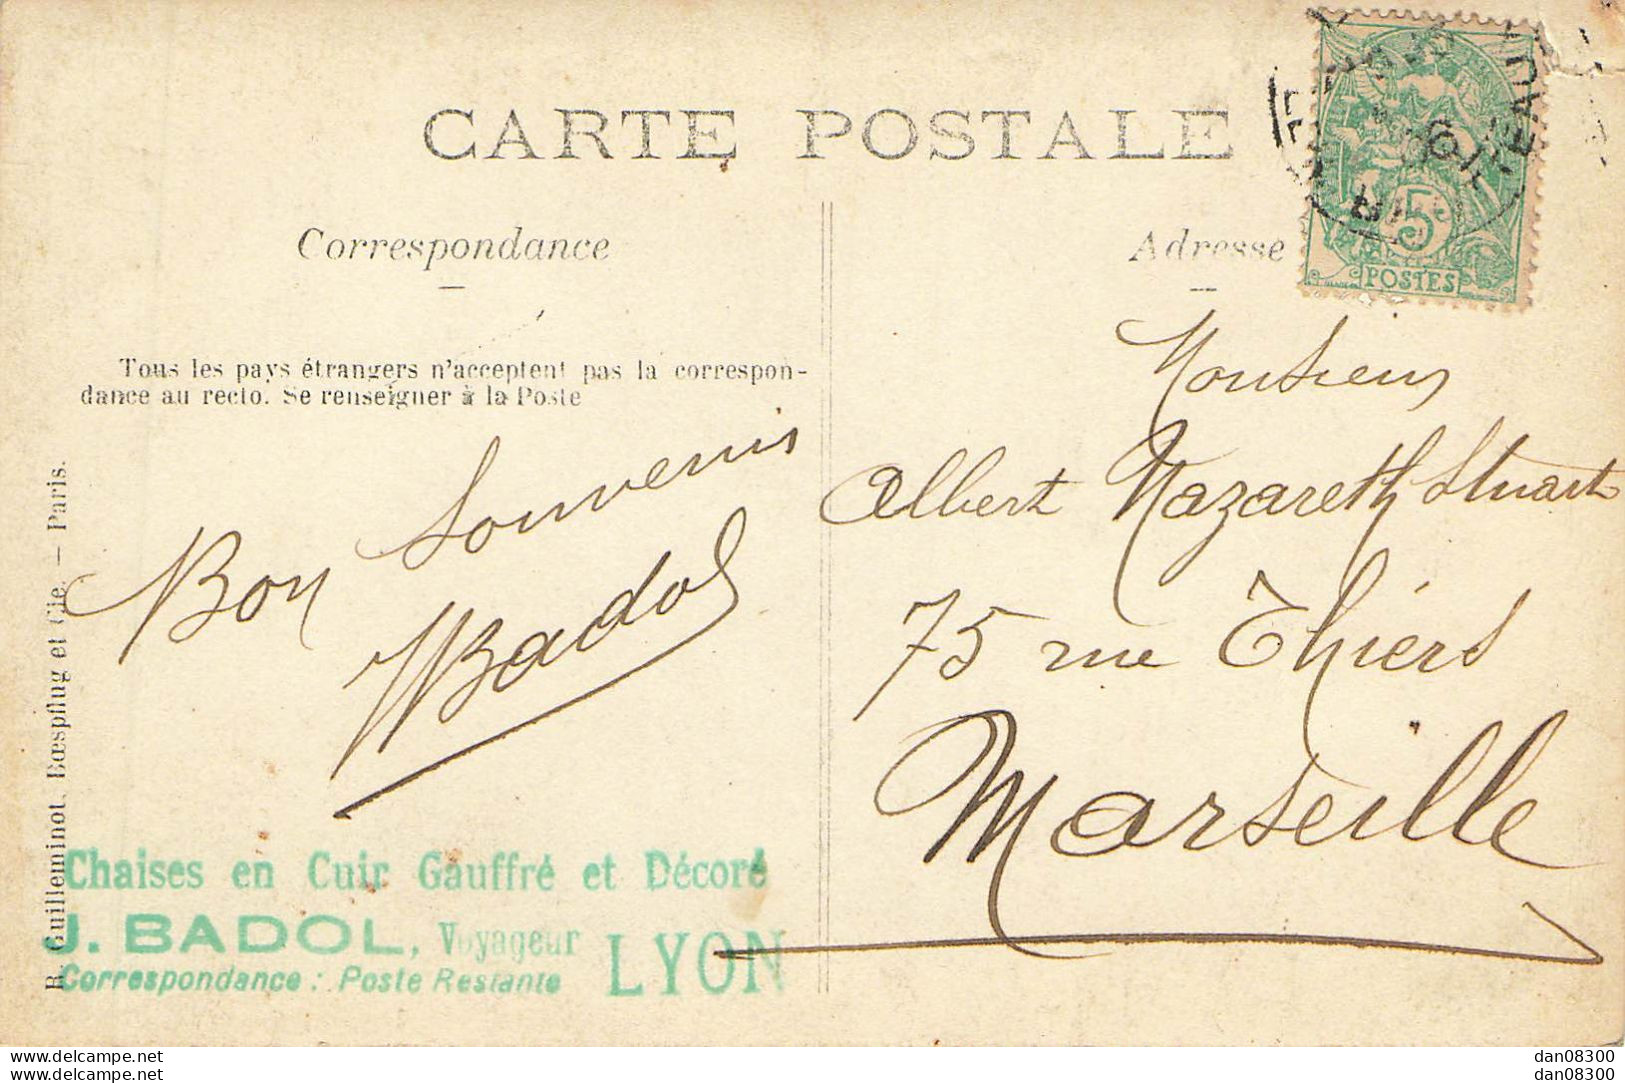 CARTE POSTALE
Correspondance
Adresse
5
POSTES
Tous les pays étrangers n'acceptent pas la correspon-
dance au recto. Se renseigner à la Poste
Bon Souvenir
JBadol
Monsieur
Albert Nazareth Stuart
75 rue Thiers
Marseille
R. Guilleminot, Bœspflug et Cie. — Paris.
Chaises en Cuir Gauffré et Décoré
J. BADOL, Voyageur LYON
Correspondance : Poste Restante
delcampe.net
delcampe.net
dan08300
dan08300